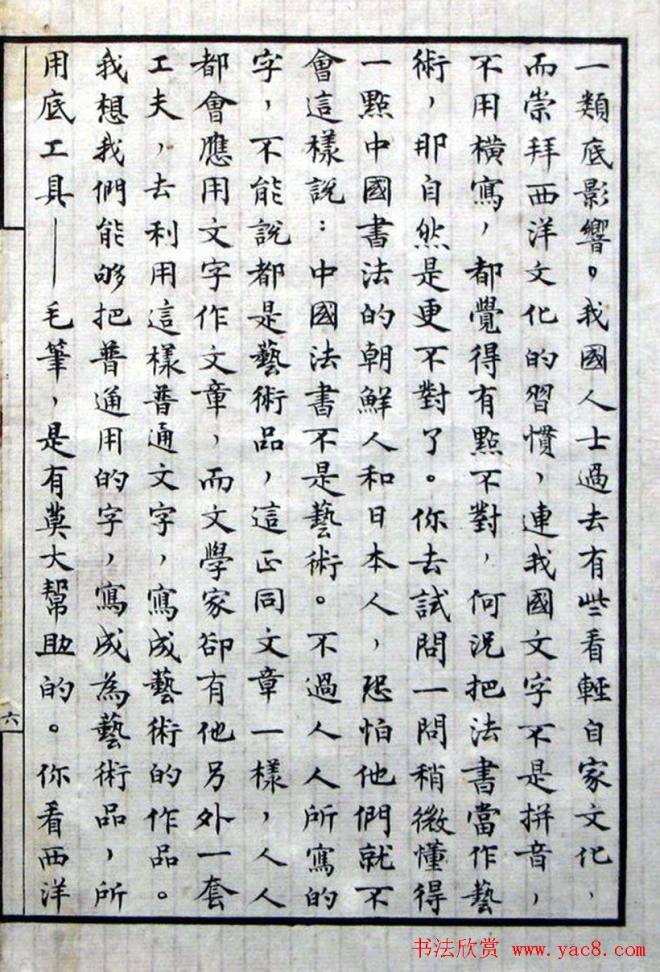 一類底影響。我國人士過去有些看輕自家文化,
而崇拜西洋文化的習慣,連我國文字不是拼音,
不用橫寫,都覺得有點不對,何況把法書當作藝
術,那自然是更不對了。你去試問一問稍微懂得
一點中國書法的朝鮮人和日本人,恐怕他們就不
會這樣說:中國法書不是藝術。不過人人所寫的
字,不能說都是藝術品,這正同文章一樣,人人
都會應用文字作文章,而文學家卻有他另外一套
工夫,去利用這樣普通文字,寫成藝術的作品。
我想我們能够把普通用的字,寫成為藝術品,所
用底工具——毛筆,是有莫大幫助的。你看西洋
六
书法欣赏 www.yac8.com